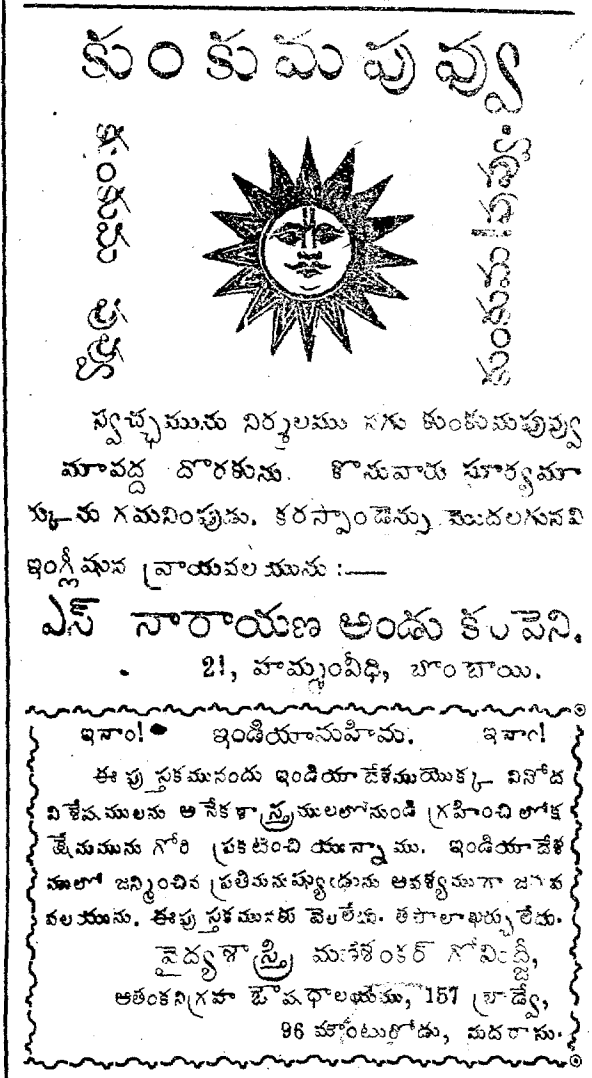 కుంకుమపువ్వు
కుంకుమ పువ్వు
కుంకుమ పువ్వు.
స్వచ్ఛమును నిర్మలము నగు కుంకుమపువ్వు
మావద్ద దొరకును. కొనువారు సూర్యమా
ర్కును గమనింపుడు. కరస్పాండెన్సు మొదలగునవి
ఇంగ్లీషున వ్రాయవలయును :—
ఎస్ నారాయణ అండు కంపెని.
21, హమ్మంవీధి, బొంబాయి.
ఇనాం! ఇండియామహిమ. ఇనాం!
ఈ పుస్తకమునందు ఇండియా దేశముయొక్క వినోద
విశేషములను అనేకశాస్త్రములలోనుండి గ్రహించి లోక
క్షేమమును గోరి ప్రకటించి యున్నాము. ఇండియాదేశ
ములో జన్మించిన ప్రతిమనుష్యుడును అవశ్యముగా జదవ
వలయును. ఈపుస్తకమునకు వెలలేదు. తపాలాఖర్చులేదు.
వైద్యశాస్త్రి మణిశంకర్ గోవిందజీ,
ఆతంకనిగ్రహ ఔషధాలయము, 157 బ్రాడ్వే,
96 మౌంటురోడు, మదరాసు.